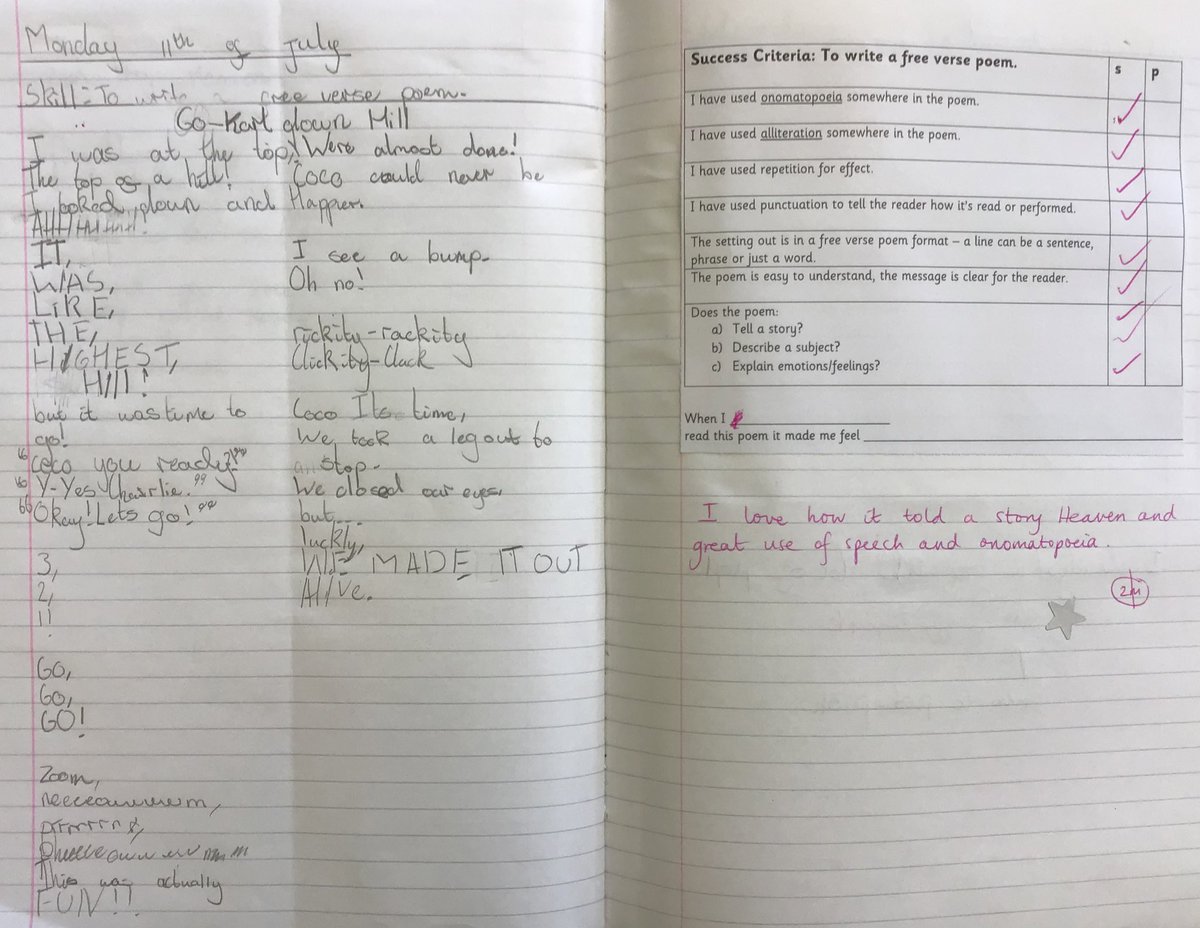 Monday 11th of July
Skill: To write a free verse poem.
Go-Kart down Hill
I was at the top,
The top of a hill!
I looked down and
AHHHHHHHH!
IT,
WAS,
LIKE,
THE,
HIGHEST,
Hill!
but it was time to
go!
"Coco you ready?"
"Y-Yes Charlie."
"Okay! Lets go!"
3,
2,
1!
GO,
GO,
GO!
Zoom,
This was actually
FUN!!
Were almost done!
Coco could never be
Happier.
I see a bump.
Oh no!
rickity-rackity
Clickity-Clack
Coco Its time,
We took a leg out to
stop.
We closed our eyes,
but...
luckly,
WE MADE IT OUT
Alive.
Success Criteria: To write a free verse poem. s p
I have used onomatopoeia somewhere in the poem.
I have used alliteration somewhere in the poem.
I have used repetition for effect.
I have used punctuation to tell the reader how it's read or performed.
The setting out is in a free verse poem format – a line can be a sentence,
phrase or just a word.
The poem is easy to understand, the message is clear for the reader.
Does the poem:
a) Tell a story?
b) Describe a subject?
c) Explain emotions/feelings?
When I
read this poem it made me feel
I love how it told a story Heaven and
great use of speech and onomatopoeia.